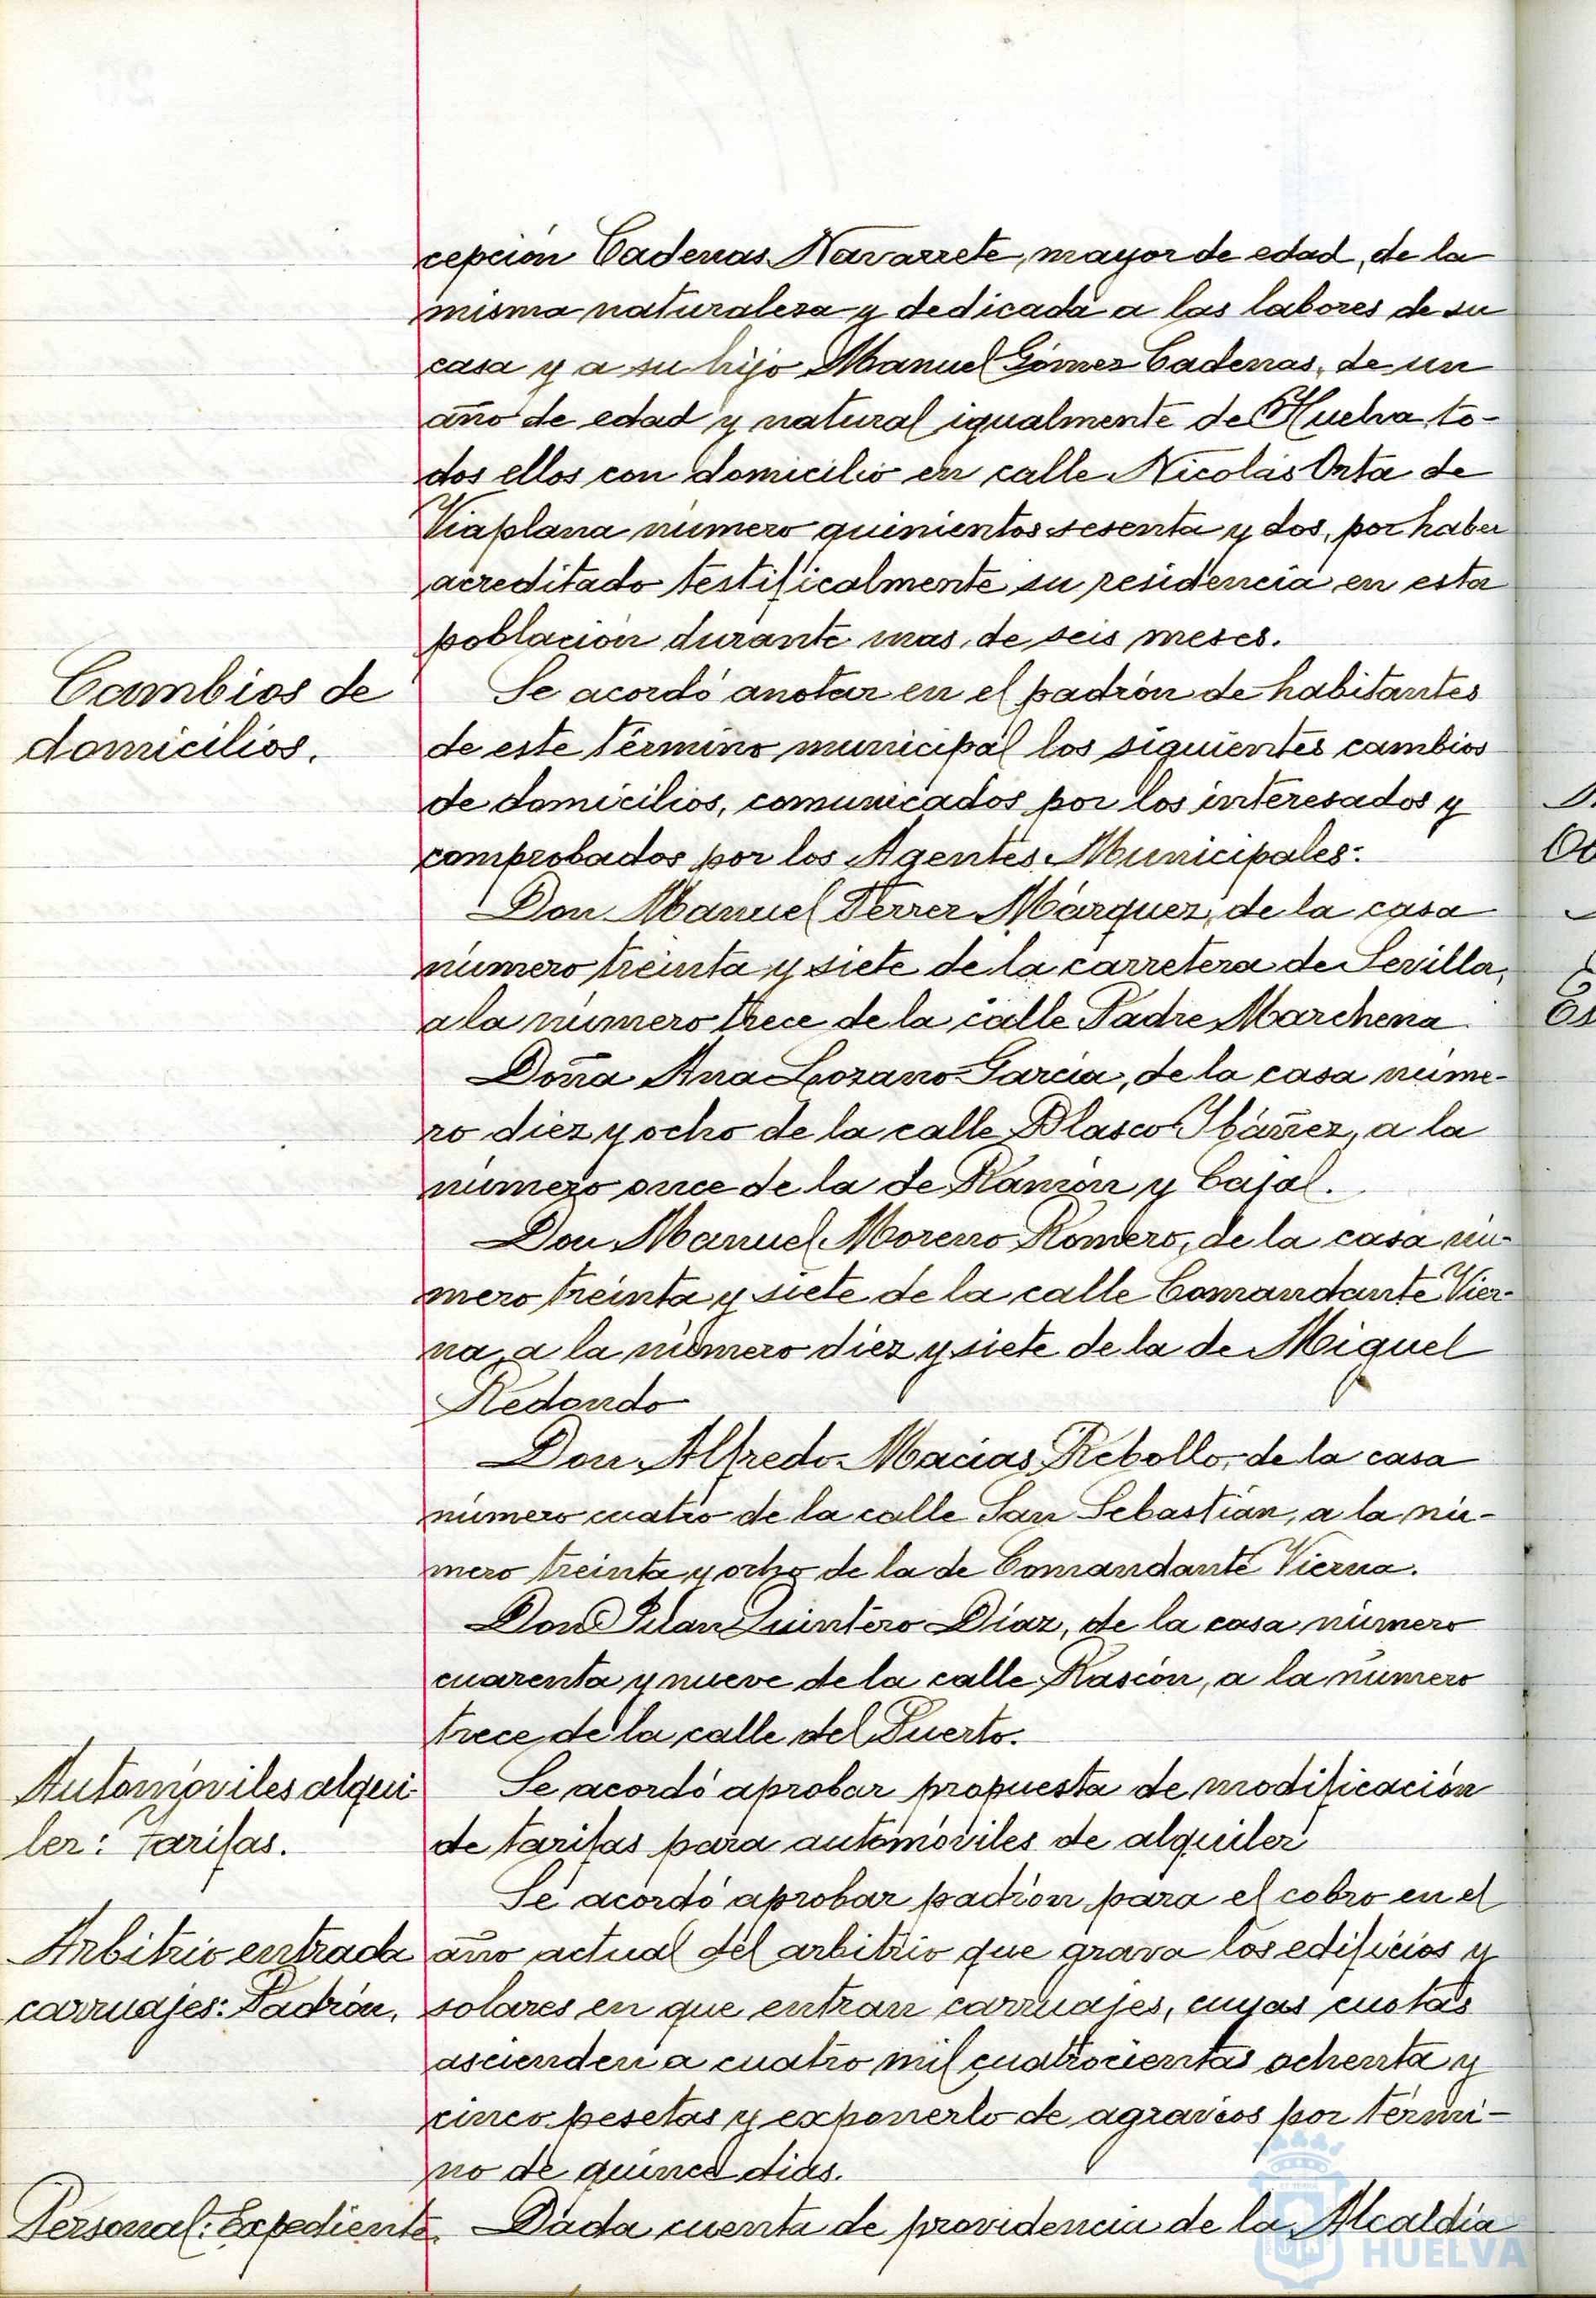 cepción Cadenas Navarrete, mayor de edad, de la
misma naturaleza y dedicada a las labores de su
casa y a su hijo Manuel Gómez Cadenas, de un
año de edad y natural igualmente de Huelva, to-
dos ellos con domicilio en calle Nicolás Orta de
Viaplana número quinientos sesenta y dos, por haber
acreditado testificalmente su residencia en esta
población durante mas de seis meses.
Cambios de
domicilios.
Se acordó anotar en el padrón de habitantes
de este término municipal los siguientes cambios
de domicilios, comunicados por los interesados y
comprobados por los Agentes Municipales:
Don Manuel Ferrer Márquez, de la casa
número treinta y siete de la carretera de Sevilla,
a la número trece de la calle Padre Marchena
Doña Ana Lozano García, de la casa núme-
ro diez y ocho de la calle Blasco Ibáñez, a la
número once de la de Ramón y Cajal.
Don Manuel Moreno Romero, de la casa nú-
mero treinta y siete de la calle Comandante Vier-
na, a la número diez y siete de la de Miguel
Redondo
Don Alfredo Macias Rebollo, de la casa
número cuatro de la calle San Sebastián, a la nú-
mero treinta y ocho de la de Comandante Vierna.
Don Quintero Díaz, de la casa número
cuarenta y nueve de la calle Rascón, a la número
trece de la calle del Puerto.
Automóviles alqui-
ler: Tarifas.
Se acordó aprobar propuesta de modificación
de tarifas para automóviles de alquiler
Arbitrio entrada
carruajes: Padrón.
Se acordó aprobar padrón para el cobro en el
año actual del arbitrio que grava los edificios y
solares en que entran carruajes, cuyas cuotas
ascienden a cuatro mil cuatrocientas ochenta y
cinco pesetas y exponerlo de agravios por térmi-
no de quince dias.
Personal: Expediente.
Dada cuenta de providencia de la Alcaldía
HUELVA